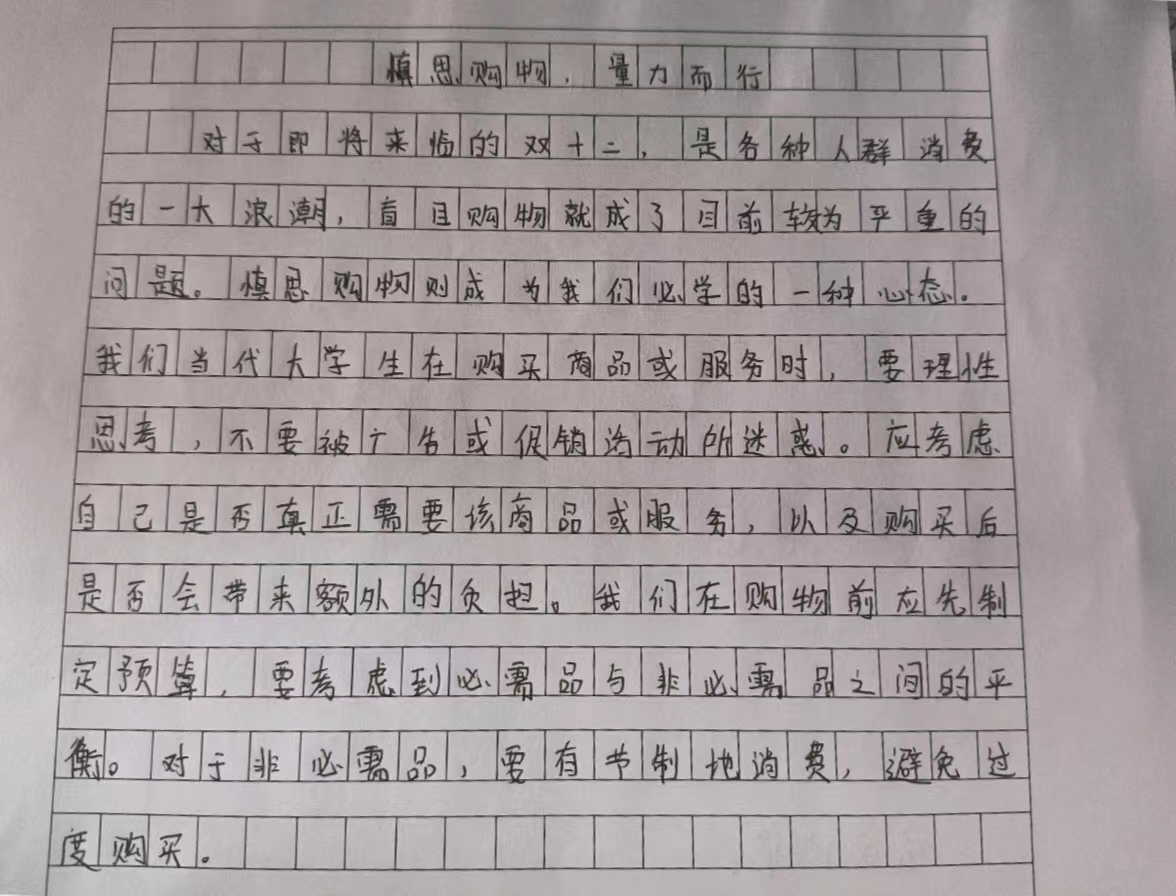 慎思购物，量力而行
对于即将来临的双十二，是各种人群消费
的一大浪潮，盲目购物就成了目前较为平重的
问题。慎思购物则成为我们必学的一种心态。
我们当代大学生在购买商品或服务时，要理性
思考，不要被广告或促销活动所迷惑。应考虑
自己是否真正需要该商品或服务，以及购买后
是否会带来额外的负担。我们在购物前应先制
定预算，要考虑到必需品与非必需品之间的平
衡。对于非必需品，要有节制地消费，避免过
度购买。